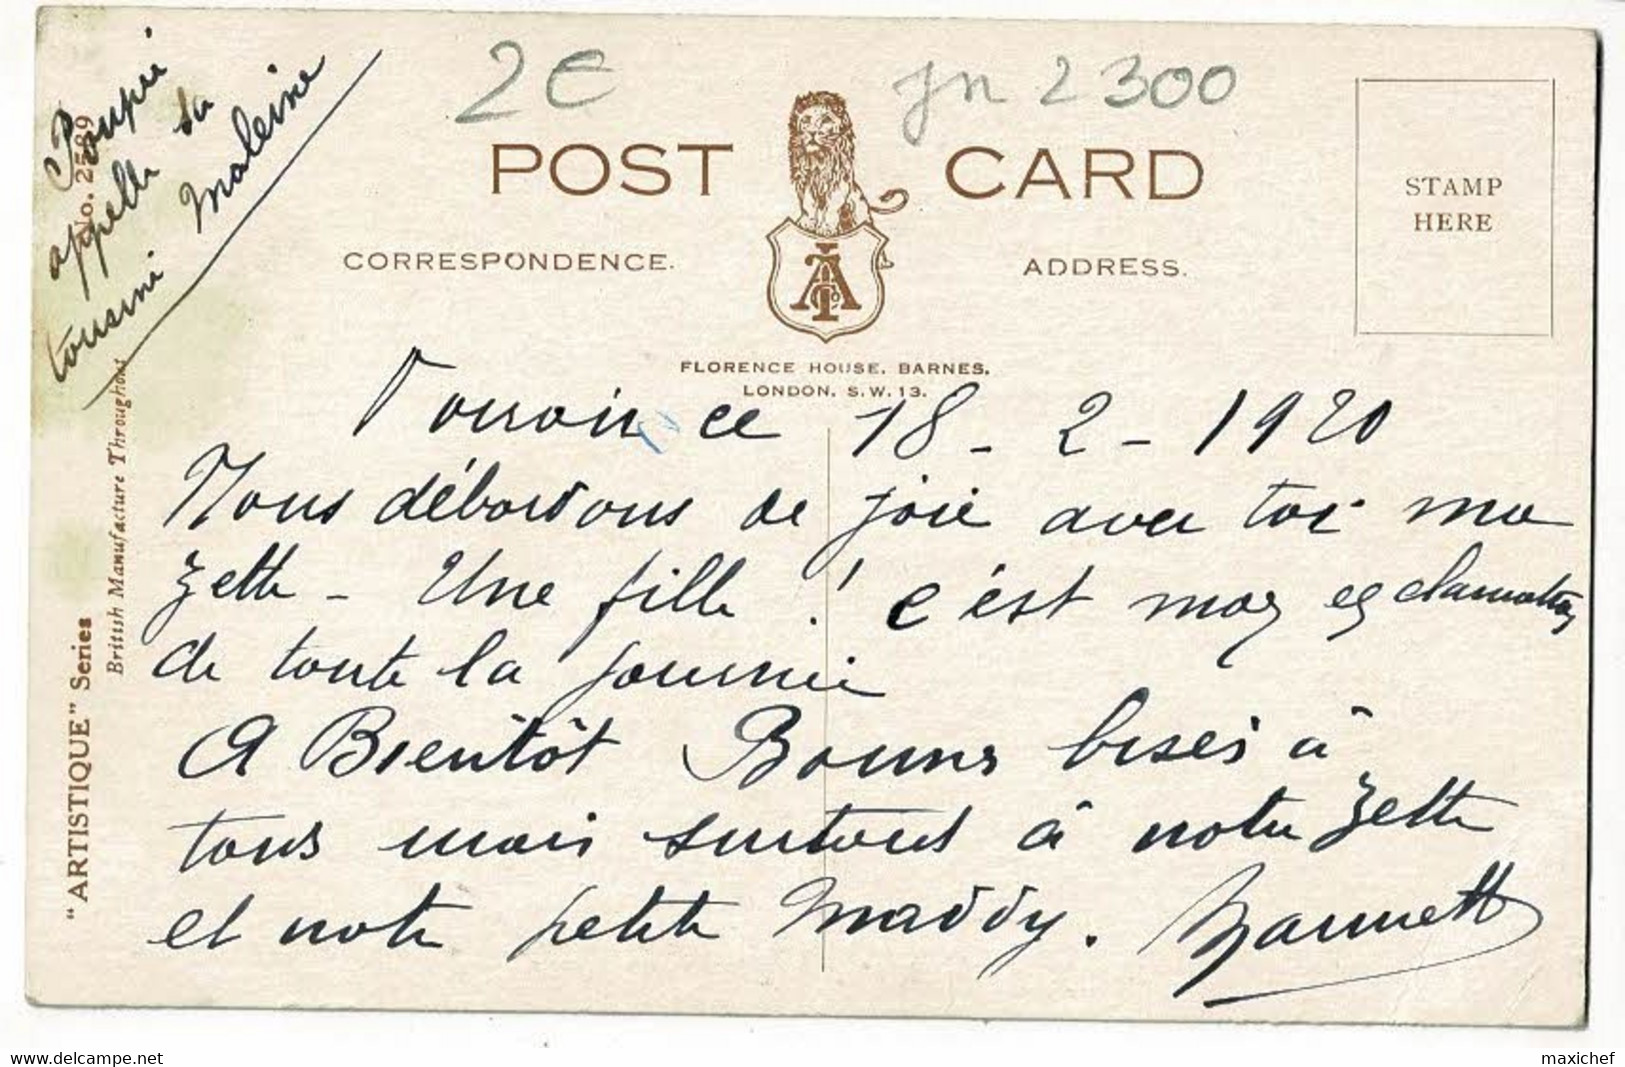 2€
Jn 2300
Poupée
appelle sa
cousine Maleine
No. 2589
POST CARD
STAMP
HERE
CORRESPONDENCE.
ADDRESS.
FLORENCE HOUSE, BARNES,
LONDON, S.W.13.
"ARTISTIQUE" Series
British Manufacture Throughout
ce 18-2-1920
Nous débordons de joie avec toi ma
Zette - Une fille ! c'est mon exclamation
de toute la journée
A Bientôt Bonnes bises à
tous mais surtout à notre Zette
et notre petite Maddy.
maxichef